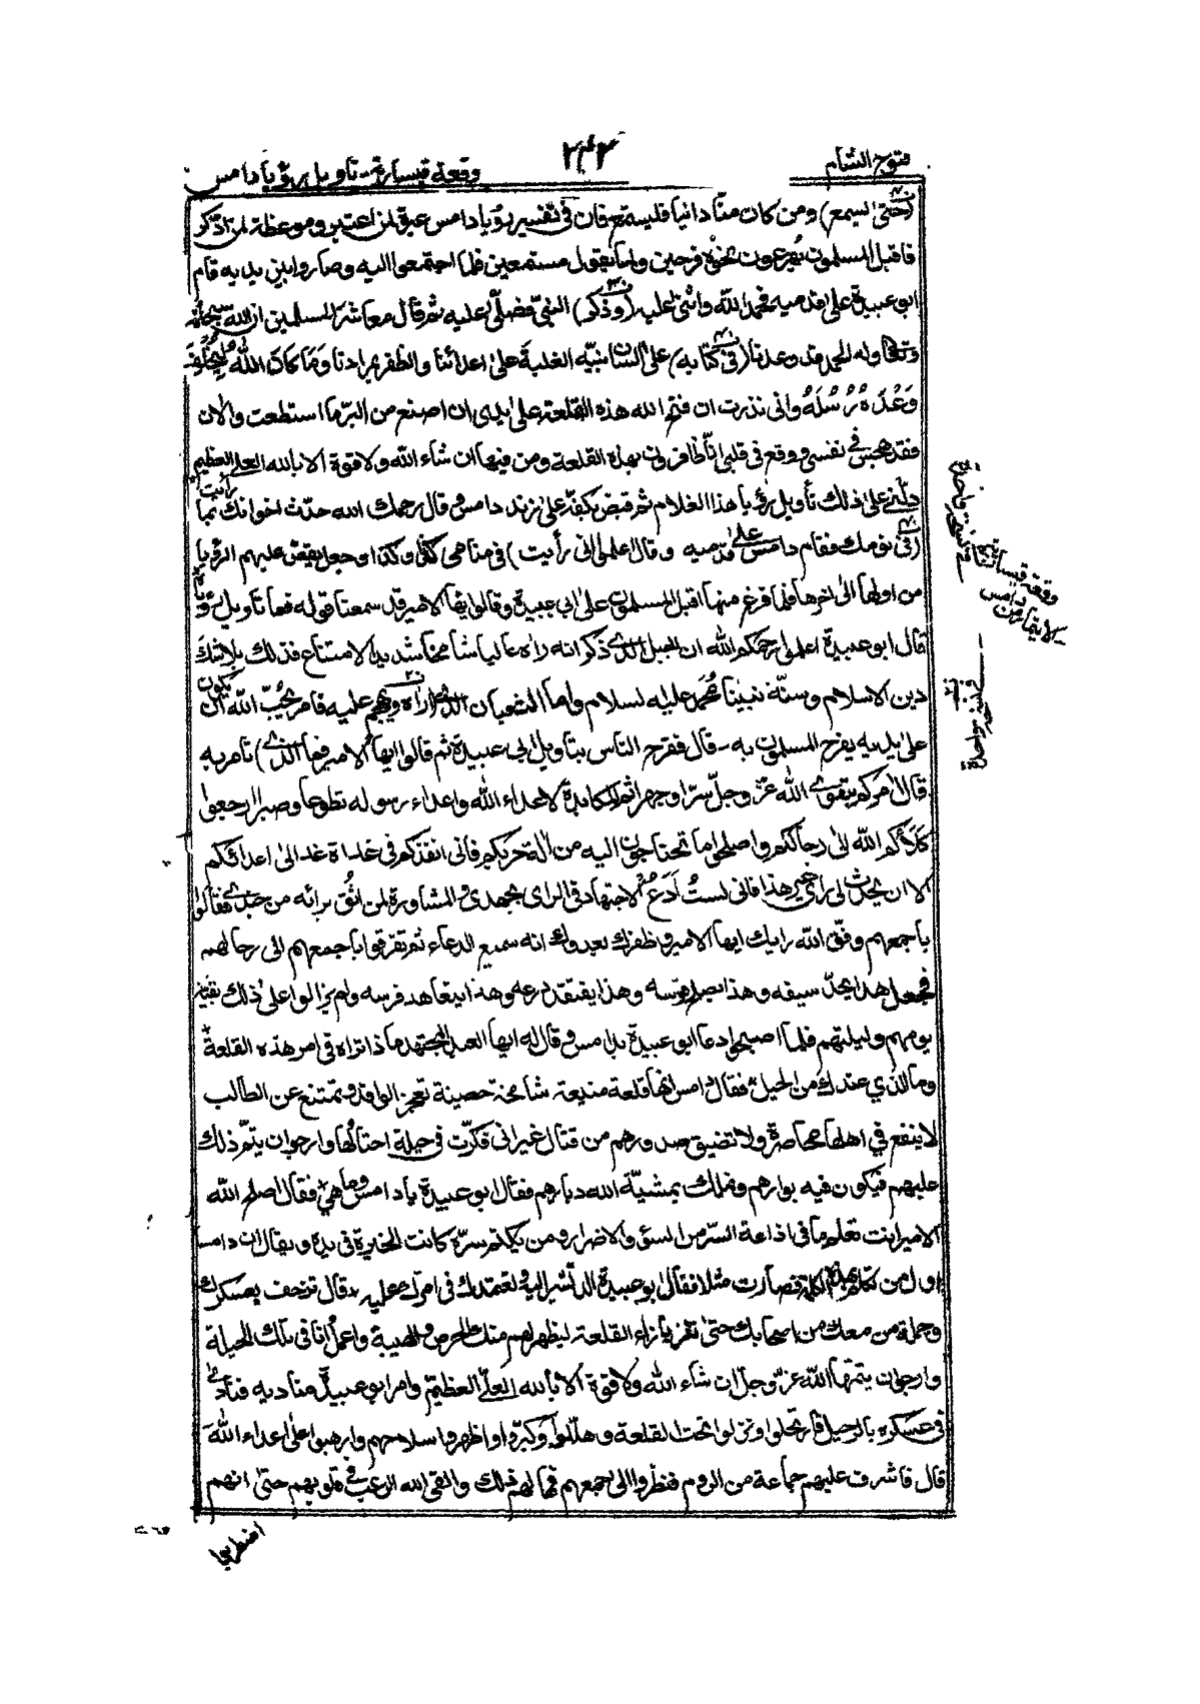 فتوح الشام
٢٤٢
وقعة قيسارية - تاويل رؤيا دامس
(حتى يسمع) ومن كان منّا دانيا فليستمع فان في تفسير رؤيا دامس عبرة لمن اعتبر وموعظة لمن اذّكر
فاقبل المسلمون يهرعون نحوه فرحين ولما يقول مستمعين فلما اجتمعوا اليه وصاروا بين يديه قام
ابو عبيدة على قدميه فحمد الله واثنى عليه (وذكر) النبيّ فصلّى عليه ثم قال معاشر المسلمين ان الله سبحانه
وتعالى وله الحمد قد وعدنا (في كتابه) على لسان نبيّه الغلبة على اعدائنا والظفر بمرادنا وَمَا كَانَ اللهُ لِيُخْلِفَ
وَعْدَهُ رُسُلَهُ وانى نذرت ان فتح الله هذه القلعة على يدى ان اصنع من البرّ ما استطعت والان
فقد هجس في نفسى ووقع فى قلبى انّا ظافرون بهذه القلعة ومن فيها ان شاء الله ولا قوة الا بالله العلى العظيم
دلّنى على ذلك تأويل رؤيا هذا الغلام ثم قبض بكفّه على زند دامس وقال رحمك الله حدّث اخوانك بما رأيت
(في نومك فقام دامس على قدميه وقال اعلموا انى رأيت) فى منامى كذا وكذا وجعل يقص عليهم الرؤيا
من اولها الى اخرها فلما فرغ منها اقبل المسلمون على ابى عبيدة وقالوا ايها الامير قد سمعنا قوله فما تاويل رؤياه
قال ابو عبيدة اعلموا رحمكم الله ان الجبل الذى ذكر انه راه عاليا شامخا شديد الامتناع فذلك بلا شك
دين الاسلام وسنّة نبيّنا محمد عليه السلام واما الثعبان الذى راه وهجم عليه فامر يحبّ الله ان يكون
على يديه يفرح المسلمون به - قال ففرح الناس بتاويل ابى عبيدة ثم قالوا ايها الامير فما الذى) تامر به
قال امركم بتقوى الله عزّ وجلّ سرّا وجهرا ثم المكابدة لاعداء الله واعداء رسوله تطوعا وصبرا ارجعوا
كلأكم الله الى رحالكم واصلحوا ما تحتاجون اليه من الة حربكم فانى انفذكم فى غداة غد الى اعدائكم
الا ان يحدث لى راى غير هذا فانى لستُ اَدَعُ الاجتهاد فى الراى بجهدى والمشاورة لمن اثق برائه من جندى فقالوا
باجمعهم وفّق الله رايك ايها الامير وظفرك بعدوك انه سميع الدعاء ثم تفرقوا باجمعهم الى رحالهم
فجعل هذا يحدّ سيفه وهذا يصلح قوسه وهذا يفتقد درعه وهذا يتعاهد فرسه ولم يزالوا على ذلك بقية
يومهم وليلتهم فلما اصبحوا دعا ابو عبيدة بدامس وقال له ايها العبد المجتهد ما ذا تراه فى امر هذه القلعة
وما الذي عندك من الحيل فقال دامس انها قلعة منيعة شامخة حصينة تعجز الوافد وتمتنع عن الطالب
لا ينفع في اهلها محاصرة ولا تضيق صدورهم من قتال غير انى فكّرت فى حيلة احتالها وارجو ان يتمّ ذلك
عليهم فيكون فيه بوارهم ونملك بمشيّة الله ديارهم فقال ابو عبيدة يا دامس وما هى فقال اصلح الله
الامير انت تعلم ما فى اذاعة السّر من السوء والاضرار ومن يكتم سرّه كانت الخيرة فى يده ويقال ان دامسا
اول من تكلم بهذه الكلمة فصارت مثلا فقال ابو عبيدة الذى اشير اليه ونعتمدك فى امرك عليه - قال تزحف بعسكرك
وجملة من معك من اصحابك حتى تنزل بازاء القلعة ليظهر لهم منك الحرص والهيبة واعمل انا فى تلك الحيلة
وارجو ان يتمّها الله عزّ وجلّ ان شاء الله ولا قوة الا بالله العلىّ العظيم وامر ابو عبيدة مناديه فنادى
فى عسكره بالرحيل فارتحلوا ونزلوا تحت القلعة وهلّلوا وكبّروا واظهروا سلاحهم وارهبوا على اعداء الله
قال فاشرف عليهم جماعة من الروم فنظروا الى جمعهم فهالهم ذلك والقى الله الرعب فى قلوبهم حتى انهم
اضطربوا